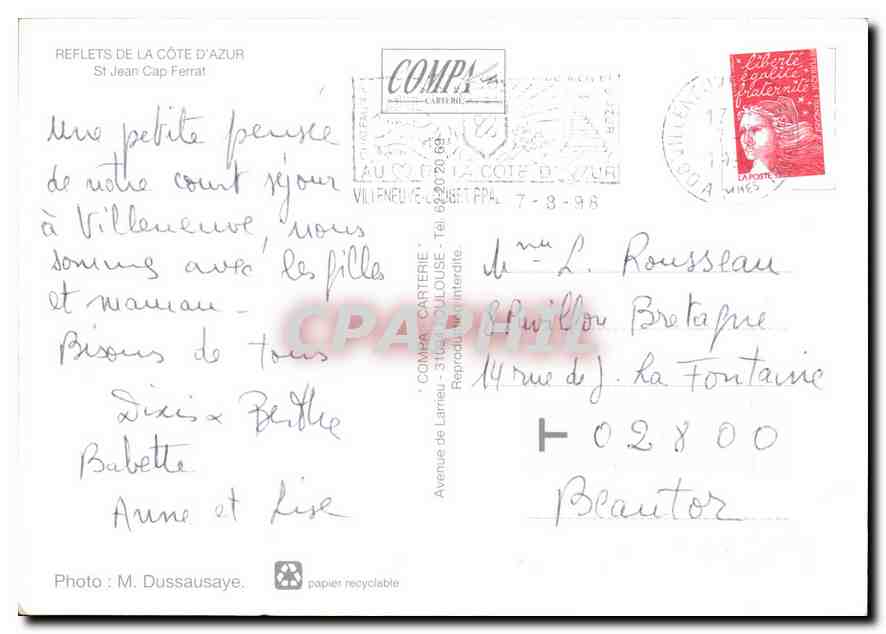 REFLETS DE LA CÔTE D'AZUR
St Jean Cap Ferrat
Une petite pensée
de notre court séjour
à Villeneuve, nous
sommes avec les filles
et maman -
Bisous de tous
Berthe
Babette
Anne et Lise
Photo : M. Dussausaye.
papier recyclable
COMPA
CARTERIE
AU DE LA COTE D'AZUR
7-8-98
"COMPA - CARTERIE"
Avenue de Larrieu - 31094 TOULOUSE - Tél. 62 20 20 69
Reproduction interdite.
liberté
égalité
fraternité
LA POSTE
Mme L. Rousseau
Pavillon Bretagne
14 rue de J. La Fontaine
T 02800
Beautor
CPAPHIL